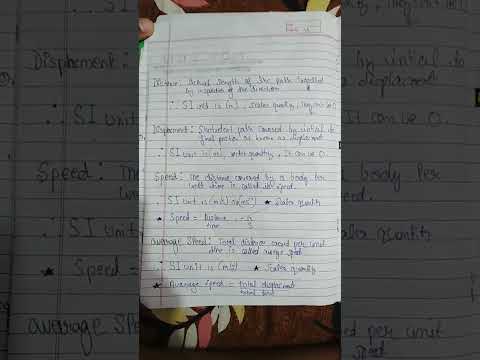 Distance: Actual length of the path travelled
by irrespective of the direction.
∴ SI unit is (m), scalar quantity,
Displacement: Shortest path covered by initial to
final position is known as displacement
∴ SI unit is (m), vector quantity, It can be 0.
Speed: The distance covered by a body per
unit time is called its speed.
∴ SI unit is (m/s) ★ Scalar quantity
★ Speed = Distance
time
Average Speed: Total distance covered per unit
time is called average speed
∴ SI unit is (m/s) ★ Scalar quantity
★ Average Speed = total displacement
total time